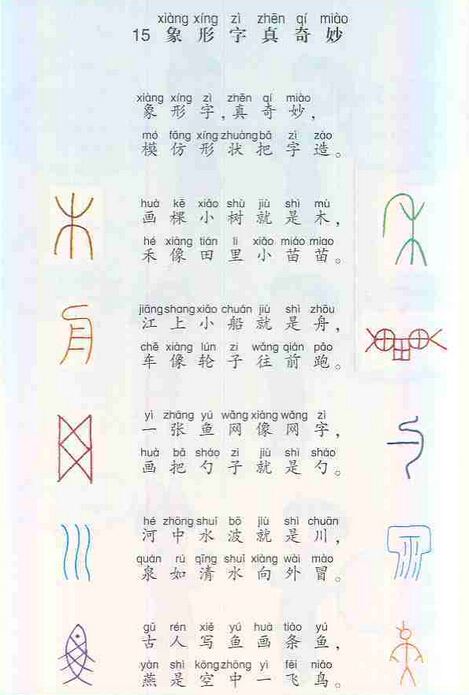 xiàng xíng zì zhēn qí miào
15 象形字真奇妙
xiàng xíng zì zhēn qí miào
象形字,真奇妙,
mó fǎng xíng zhuàng bǎ zì zào
模仿形状把字造。
huà kē xiǎo shù jiù shì mù
画棵小树就是木,
hé xiàng tián li xiǎo miáo miao
禾像田里小苗苗。
jiāng shang xiǎo chuán jiù shì zhōu
江上小船就是舟,
chē xiàng lún zi wǎng qián pǎo
车像轮子往前跑。
yì zhāng yú wǎng xiàng wǎng zì
一张鱼网像网字,
huà bǎ sháo zi jiù shì sháo
画把勺子就是勺。
hé zhōng shuǐ bō jiù shì chuān
河中水波就是川,
quán rú qīng shuǐ xiàng wài mào
泉如清水向外冒。
gǔ rén xiě yú huà tiáo yú
古人写鱼画条鱼,
yàn shì kōng zhōng yì fēi niǎo
燕是空中一飞鸟。